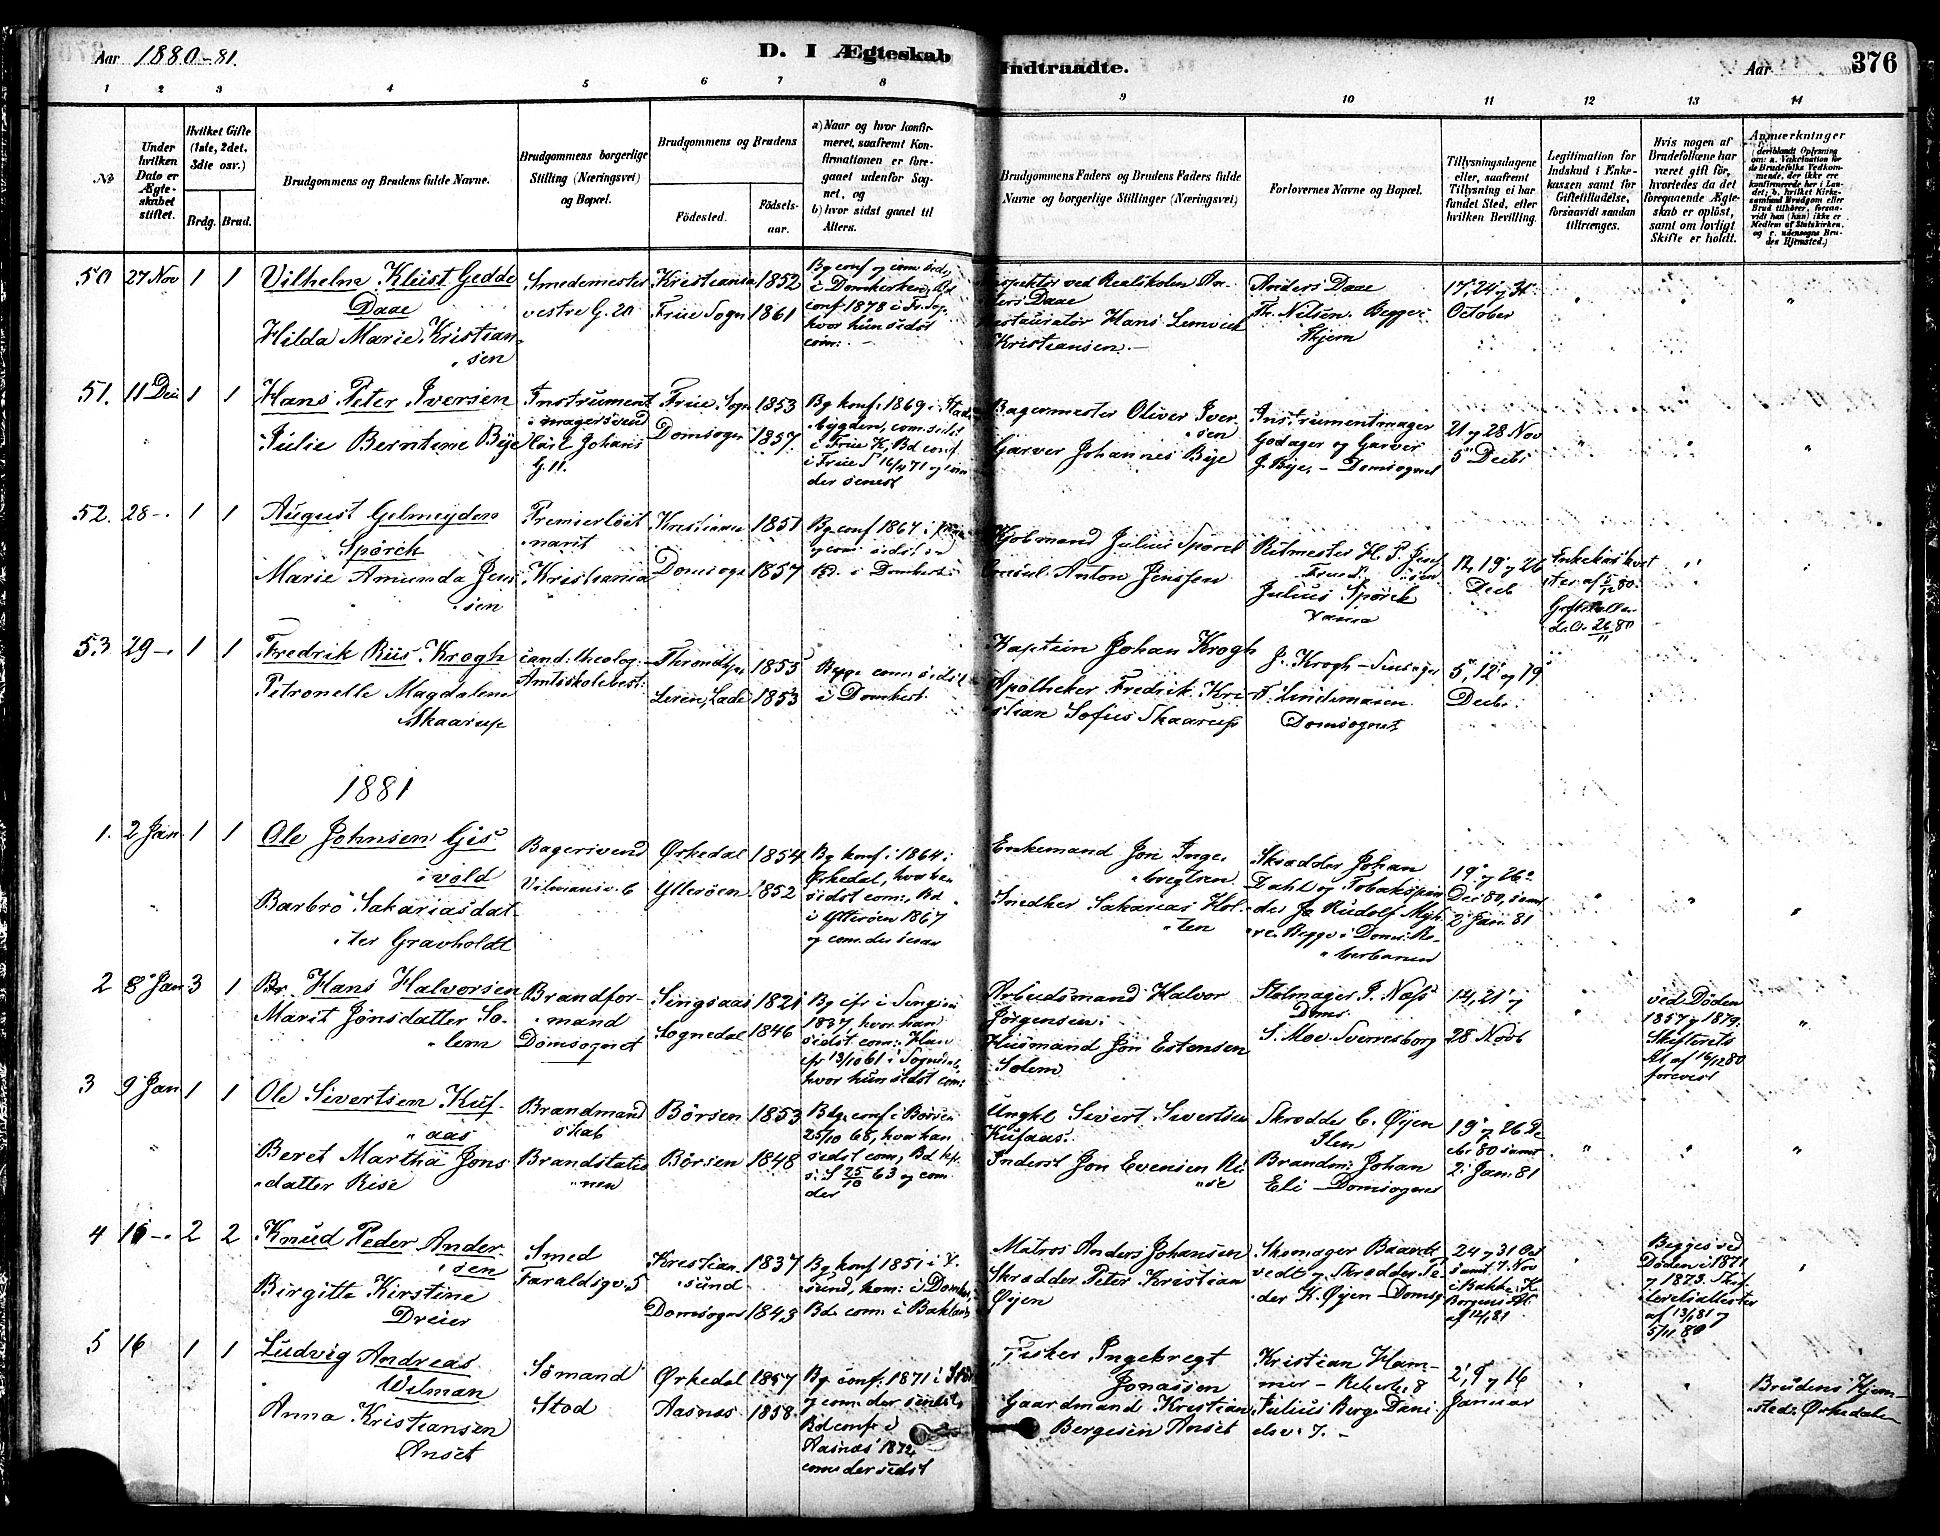 Aar 1880-81.
D. I Ægteskab
Indtraadte.
Aar
376
1 2 3 4 5 6 7 8 9 10 11 12 13 14
№
Under hvilken Dato er Ægteskabet stiftet.
Hvilket Gifte (1ste, 2det, 3die osv.)
Brdg. Brud.
Brudgommens og Brudens fulde Navne.
Brudgommens borgerlige Stilling (Næringsvei) og Bopæl.
Brudgommens og Brudens
Fødested.
Fødselsaar.
a) Naar og hvor konfirmeret, saafremt Konfirmationen er foregaaet udenfor Sognet, og
b) hvor sidst gaaet til Alters.
Brudgommens Faders og Brudens Faders fulde Navne og borgerlige Stillinger (Næringsvei)
Forlovernes Navne og Bopæl.
Tillysningsdagene eller, saafremt Tillysning ei har fundet Sted, efter hvilken Bevilling.
Legitimation for Indskud i Enkekassen samt for Giftetilladelse, forsaavidt saadan tiltrænges.
Hvis nogen af Brudefolkene har været gift før, hvorledes da det foregaaende Ægteskab er opløst, samt om lovligt Skifte er holdt.
Anmærkninger
50 27 Nov 1 1
Vilhelm Kleist Gedde
Daae
Hilda Marie Kristian-
sen
Smedemester
vestre G. 20
Kristiansu 1852
Frue Sogn 1861
By conf og com sidst
i Domkirken, Bd
conf 1878 i Fr. Sog.
hvor hun sidst
com:
Inspektør ved Realskolen An-
ders Daae
Restauratør Hans Lemvick
Kristiansen.
Anders Daae
Th. Nilsen. Begge i
Thjem
17, 24 og 31
October
51. 11 Dec 1 1
Hans Peter Iversen
Julie Berntine Bye
Instrument
magersvend
Carl Johans
G. 11.
Frue Sogn 1853
Domsogn 1857
Bg konf. 1869 i Stads-
bygden, com. sidst
i Frue K, Bd conf
i Frue S 16/4 71 og com
der senest
Bagermester Oliver Iver-
sen
Garver Johannes Bye
Instrumentmager
Godager og Garver
J. Bye, - Domsognet
21 og 28 Nov
5 Decbr
52. 28 -. 1 1
August Gelmeyden
Spørck
Marie Amunda Jens-
sen
Premierløit-
nant
Kristiania
Kristiania 1851
Domsogn 1857
Bg. conf 1867 i
og com sidst
Bd. i Domkirk:
Kjøbmand Julius Spørck
Consul Anton Jenssen
Ritmester H. P. Jens-
sen
Julius Spørck
12, 19 og 26
Decb
Enkekaskvit
ter af 5/12 80.
53 29 -. 1 1
Fredrik Riis Krogh
Petronelle Magdalene
Skaarup
cand: theolog.
Amtsskolebest.
Throndhjm 1855
Leren, Lade 1853
Begge com: sidst
i Domkirk.
Kaptein Johan Krogh
Apotheker Fredrik Kri-
stian Sofus Skaarup
J. Krogh -
F. Lindemann
Domsognet
5, 12 og 19
Decbr.
1881
1. 2 Jan. 1 1
Ole Johnsen Gis-
vold
Barbro Sakariasdat-
ter Gravholdt
Bagersvend
Vilmansv. 6
Ørkedal 1854
Ytterøen 1852
Bg konf. i 1864 i
Ørkedal, hvor han
sidst com:, Bd
i Ytterøen 1867
og com. der senest
Enkemand Jon Inge-
brigtsen
Snedker Sakarias Hol-
ten
Skrædder Johan
Dahl og Tobakspin-
der Rudolf Myh-
re. Begge i Doms.
19 og 26
Dec. 80, samt
2 Jan. 81
2 8 Jan 3 1
Br. Hans Halvorsen
Marit Jonsdatter So-
lem
Brandfor-
mand
Domsognet
Singsaas 1821
Sognedal 1846
Bg cfr i Singsaas
1837, hvor han
sidst com:
cfr 13/10 61 i Sognedal,
hvor hun sidst com:
Arbeidsmand Halvor
Jørgensen:
Husmand Jon Estensen
Solem
Stolmager P. Næss
Doms.
S. Moe Sverresborg
14, 21 og
28 Novb
ved Døden
1857 og 1879.
Skifterets
At. af 16/12 80
forevist
3 9 Jan 1 1
Ole Sivertsen Kuf-
aas
Beret Martha Jons-
datter Rise
Brandmand
skab
Brandstatio-
nen
Børsen 1853
Børsen 1848
Bdg. conf. i Børsen
25/10 68, hvor han
sidst com, Bd kf.
s. S 25/10 63 og com
der
Ungkl Sivert Sivertsen
Kufaas.
Inderst Jon Evensen Ri-
se
Skrædder C. Øyen
Ilen
Brandm: Johan
Eli - Domsognet
19 og 26 De-
cbr 80 samt
2 Jan. 81
4 15 -. 2 2
Knud Peder Ander-
sen
Birgitte Kirstine
Dreier
Smed
Faraldsgv. 5
Kristian-
sund 1837
Domsognet 1843
Bg konf 1851 i K.
sund, kom: i Domkir,
Bd com: i Baklan
Matros Anders Johansen
Skrædder Peter Kristian
Øyen
Skomager
og Skrædder Pe-
der K. Øyen - Domsg
24 og 31 Oct
samt 7. Nov
i Bakke K.
af 14/1 81
Begges ved
Døden i 1871
og 1873. Skif-
teretsattester
af 13/1 81 og
5/11 80
5 16 1 1
Ludvig Andreas
Wilman
Anna Kristiansen
Anset
Sømand
Stod
Ørkedal 1857
Aasnes 1858
Bg conf. 1871 i
og com: der senest,
Bd conf. i
Aasnes 1872
com: der sidst
Fisker Ingebregt
Jonassen
Gaardmand Kristian
Bergesen Anset
Kristian Ham-
mer -
Julius Berg. Dani-
elsv. 7. -
2, 9 og 16
Januar
Brudens Hjem-
sted: Ørkedalen